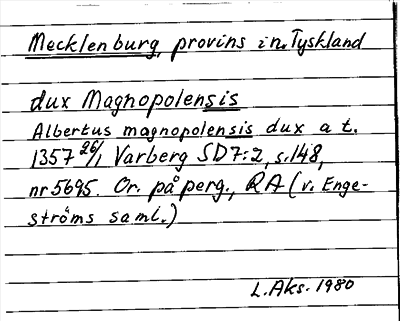 Mecklenburg, provins i n. Tyskland
dux Magnopolensis
Albertus magnopolensis dux a t.
1357 26/1 Varberg SD7:2, s. 148,
nr 5695. Or. på perg., RA (v. Enge-
ströms saml.)
L. Aks. 1980